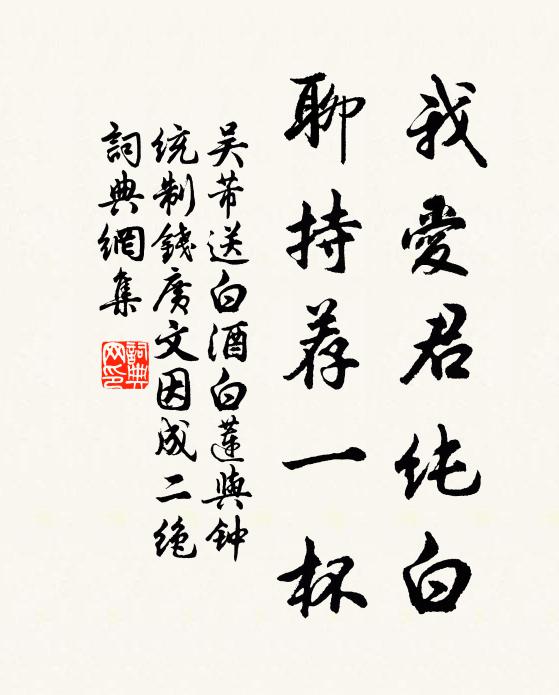 我愛君纯白
聊持荐一杯
吴芾送白酒白蓮與钟
统制錢廣文因成二绝
詞典網集
詞典网印